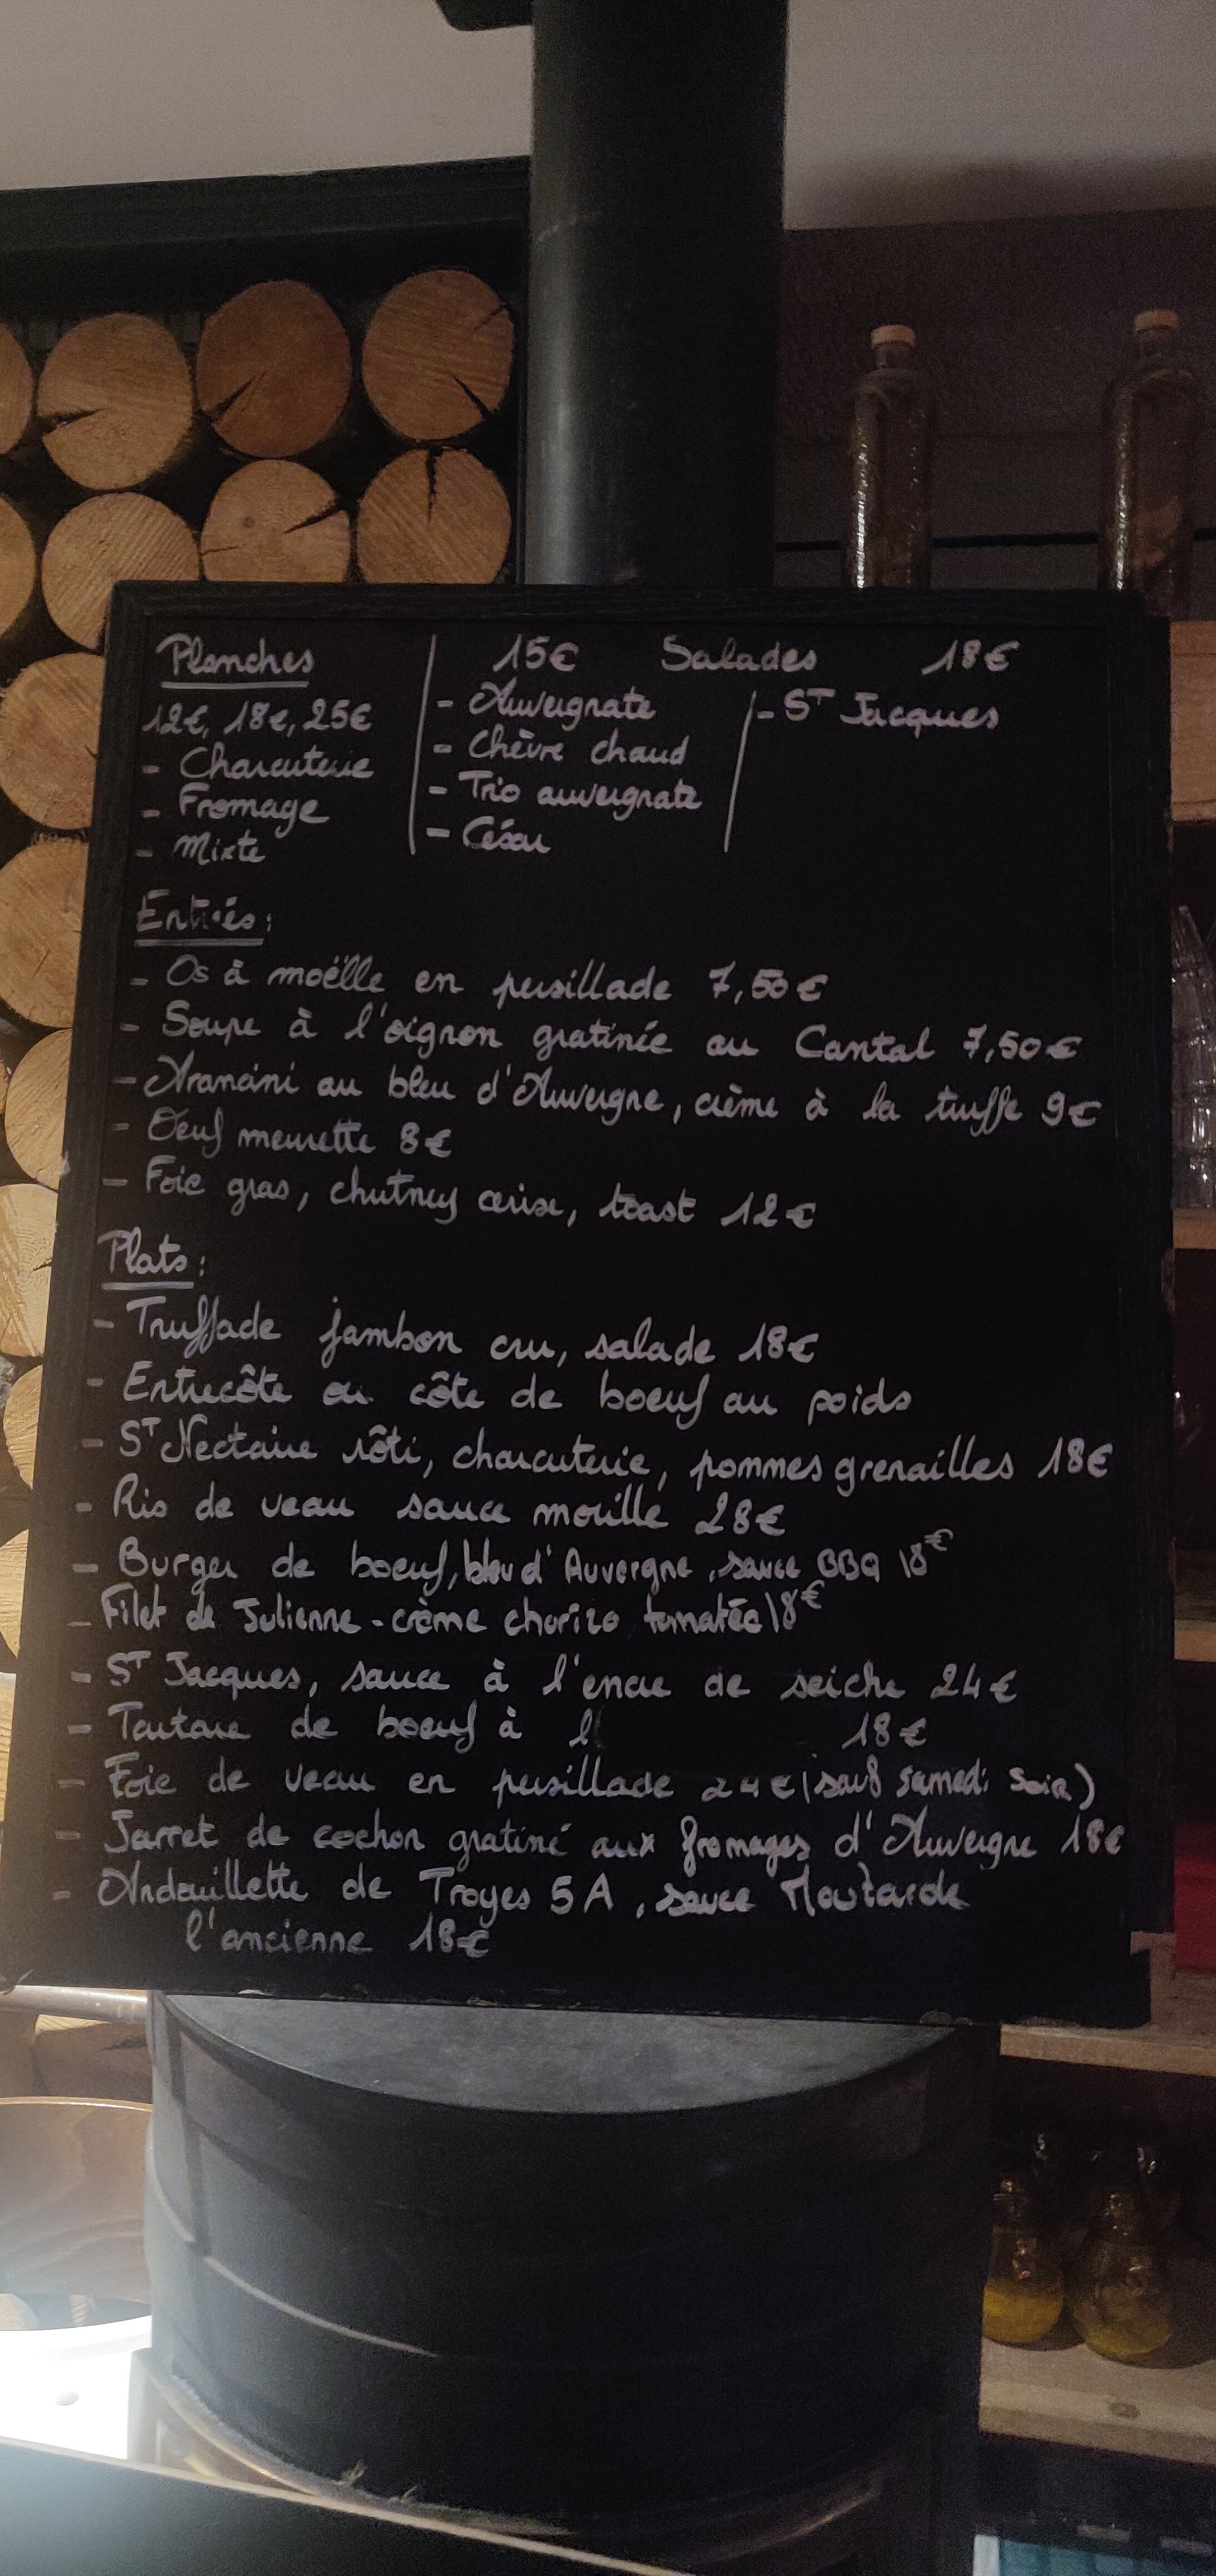 Planches
12€, 18€, 25€
- Charcuterie
- Fromage
- Mixte
15€ Salades 18€
- Auvergnate
- Chèvre chaud
- Trio auvergnate
- César
- ST Jacques
Entrés :
- Os à moëlle en persillade 7,50€
- Soupe à l'oignon gratinée au Cantal 7,50€
- Arancini au bleu d'Auvergne, crème à la truffe 9€
- Oeuf meurette 8€
- Foie gras, chutney cerise, toast 12€
Plats :
- Truffade jambon cru, salade 18€
- Entrecôte ou côte de boeuf au poids
- ST Nectaire rôti, charcuterie, pommes grenailles 18€
- Ris de veau sauce morille 28€
- Burger de boeuf, bleu d'Auvergne, sauce BBQ 18€
- Filet de Julienne - crème chorizo tomatée 18€
- ST Jacques, sauce à l'encre de seiche 24€
- Tartare de boeuf à l' 18€
- Foie de veau en persillade 24€ (sauf samedi soir)
- Jarret de cochon gratiné aux fromages d'Auvergne 18€
- Andouillette de Troyes 5A, sauce Moutarde
l'ancienne 18€